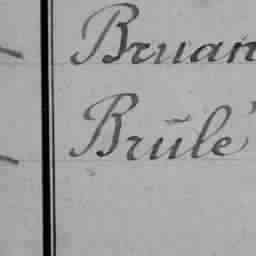 Bruan
Brūlé